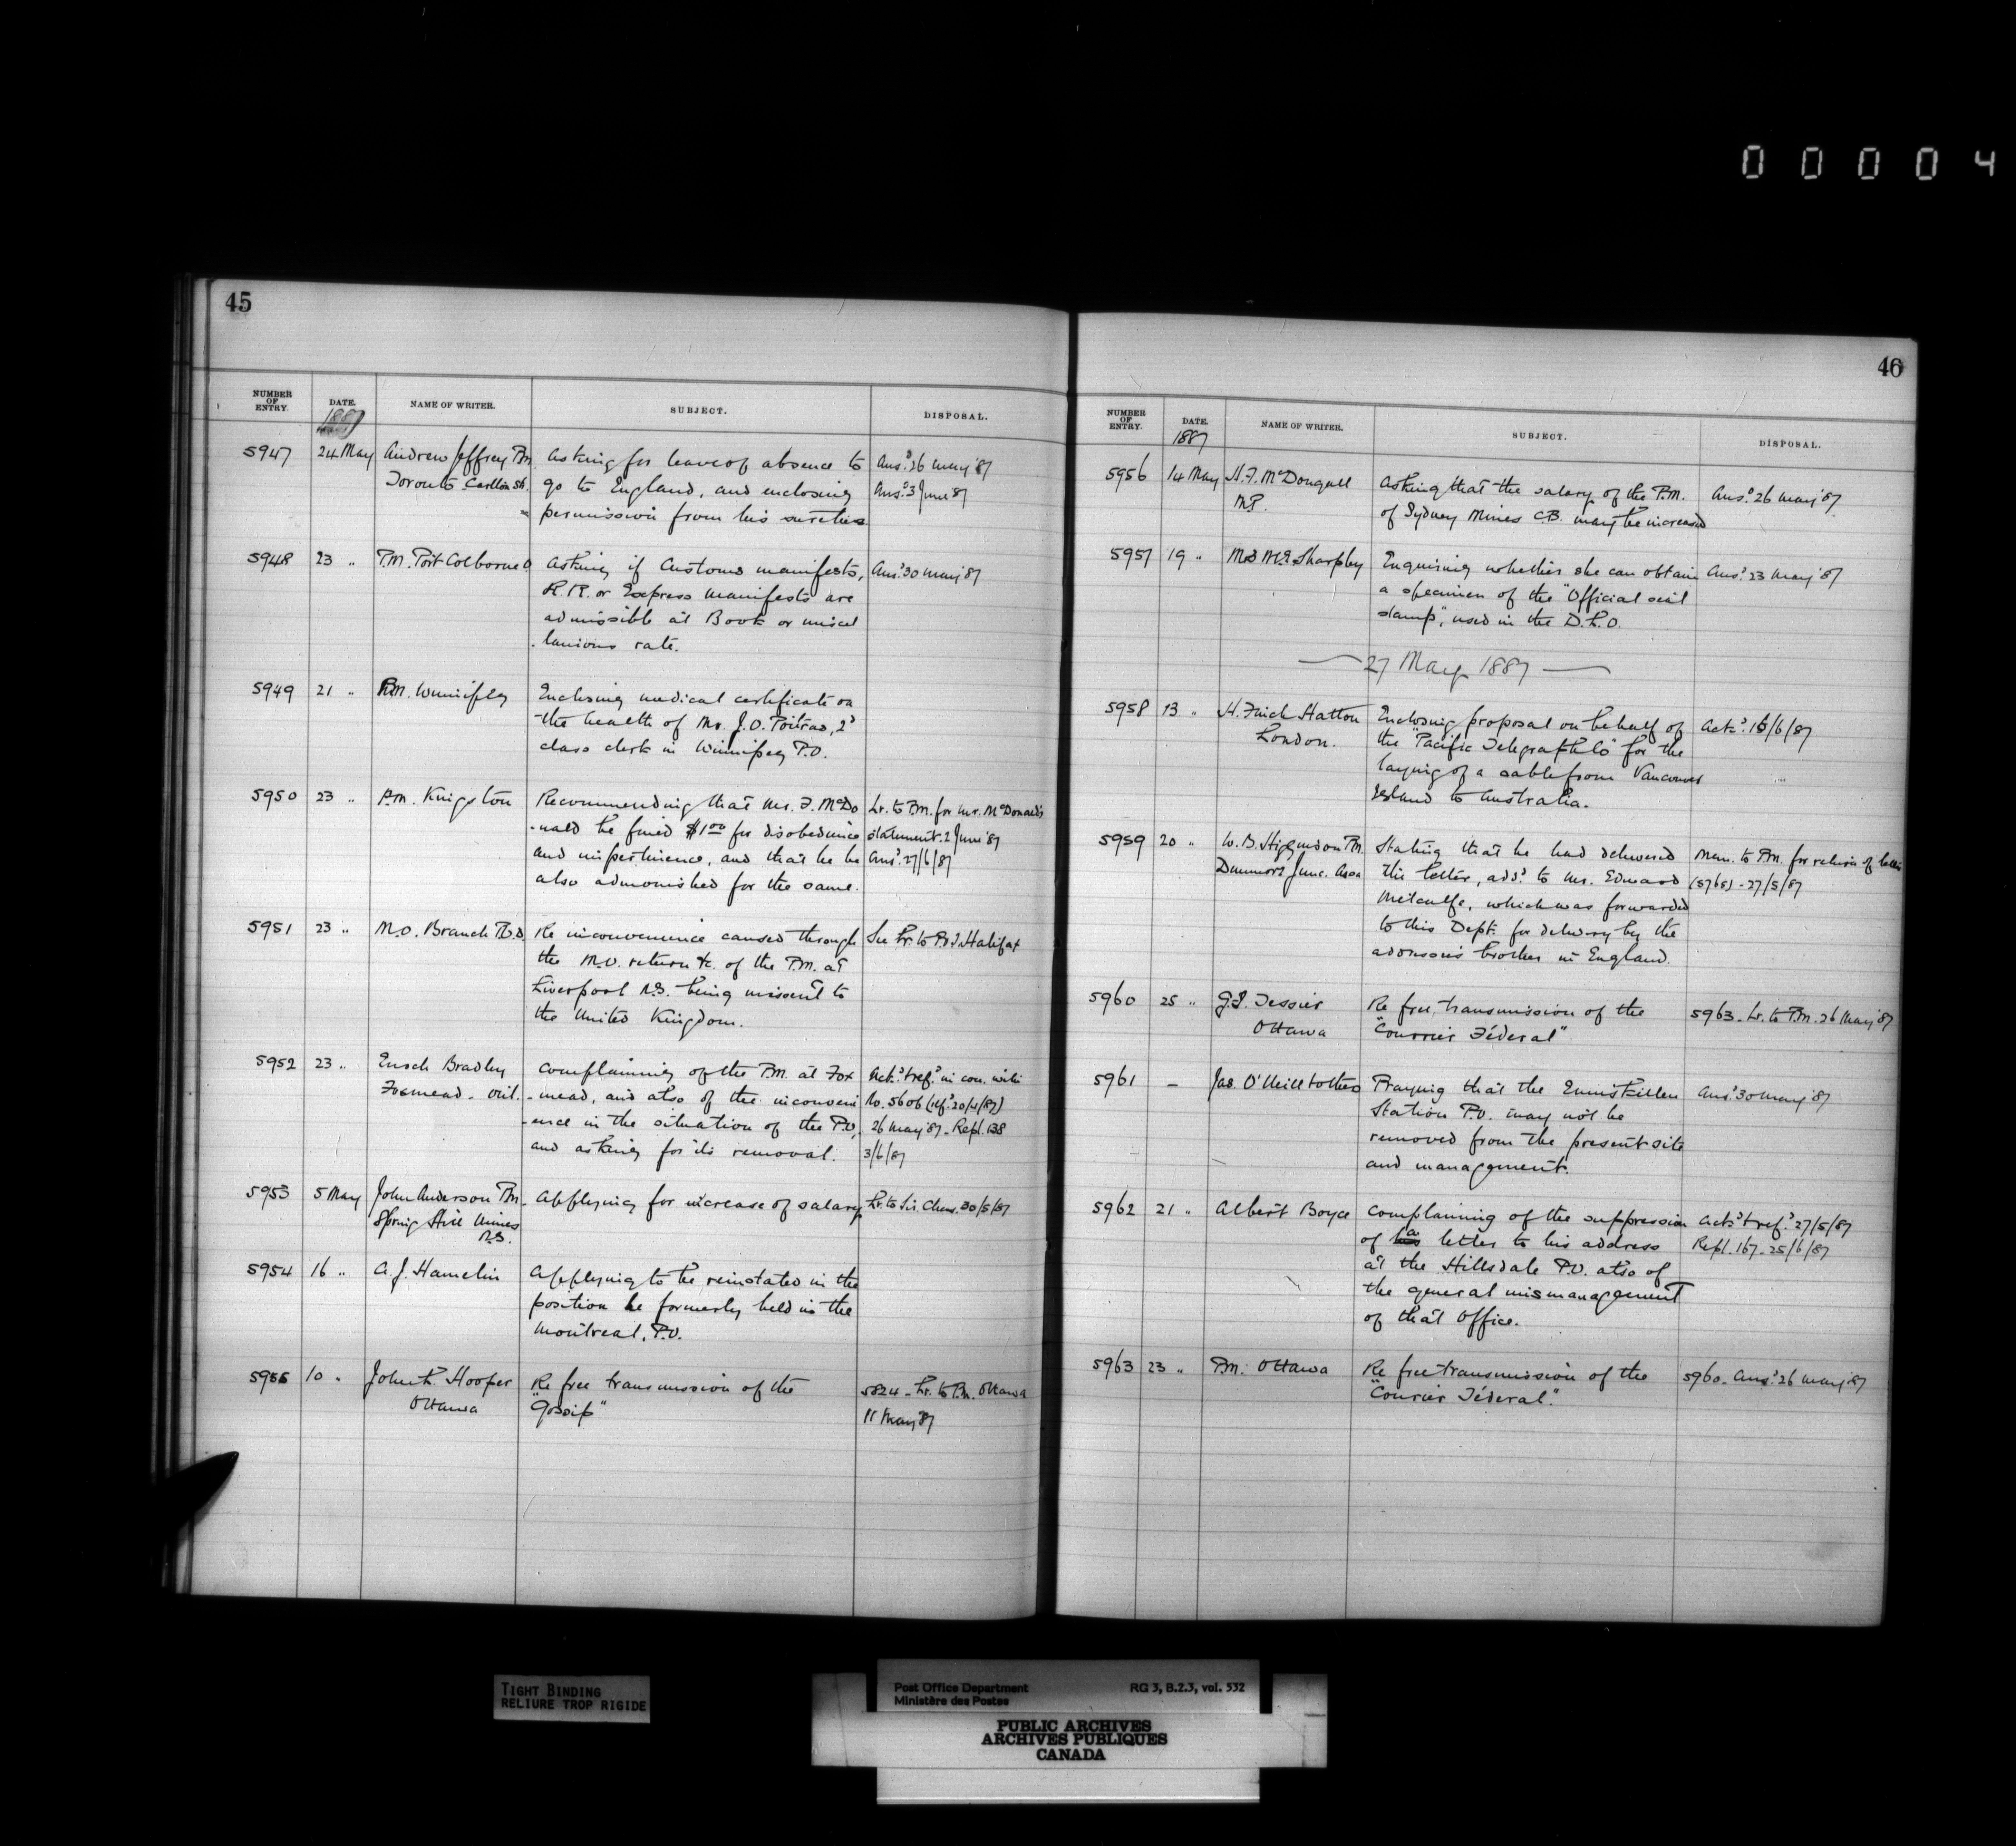 00004
45
NUMBER OF ENTRY. DATE. 1887 NAME OF WRITER. SUBJECT. DISPOSAL.
5947 24 May Andrew Jeffrey P.M. Asking for leave of absence to Ansd 26 May '87
Toronto Carlton St. go to England, and enclosing Ansd 3 June '87
permission from his sureties.
5948 23 " P.M. Port Colborne O Asking if Customs manifests, Ansd 30 May '87
R.R. or Express manifests are
admissible at Book or miscel
-lanious rate.
5949 21 " P.M. Winnipeg Enclosing medical certificate on
the health of Mr. J.O. Poitras, 2d
class clerk in Winnipeg P.O.
5950 23 " P.M. Kingston Recommending that Mr. F. McDo Lr. to P.M. for Mr. McDonald's
-nald be fined $1.00 for disobedience statement. 2 June '87
and impertinence, and that he be Ansd 27/6/87
also admonished for the same.
5951 23 " M.O. Branch P.O.D. Re inconvenience caused through See Lr. to P.O.I. Halifax
the M.O. return &c. of the P.M. at
Liverpool N.S. being missent to
the United Kingdom.
5952 23 " Enoch Bradley Complaining of the P.M. at Fox Ackd & refd in con. with
Foxmead - Ont. -mead, and also of the inconveni No. 5606 (refd 20/4/87)
-ence in the situation of the P.O, 26 May '87 - Repl. 138
and asking for its removal. 3/6/87
5953 5 May John Anderson P.M. Applying for increase of salary Lr. to Sir. Chas. 30/5/87
Spring Hill Mines
N.S.
5954 16 " A.J. Hamelin Applying to be reinstated in the
position he formerly held in the
Montreal, P.O.
5955 10 " John R. Hooper Re free transmission of the 5824 - Lr. to P.M. Ottawa
Ottawa "Gossip" 11 May '87
46
NUMBER OF ENTRY. DATE. 1887 NAME OF WRITER. SUBJECT. DISPOSAL.
5956 14 May H.F. McDougall Asking that the salary of the P.M. Ansd 26 May '87
M.P. of Sydney Mines C.B. may be increased
5957 19 " Sharpley Enquiring whether she can obtain Ansd 23 May '87
a specimen of the "Official seal
stamp", used in the D.L.O.
27 May 1887
5958 13 " H. Finch Hatton Enclosing proposal on behalf of Ackd 15/6/87
London. the "Pacific Telegraph Co" for the
laying of a cable from Vancouver
Island to Australia.
5959 20 " W.B. Higgindon P.M. Stating that he had delivered Mem. to P.M. for return of letter
Dunmore Junc. Assa the letter, addd to Mr. Edward (5768) - 27/5/87
Metcalfe, which was forwarded
to this Dept. for delivery by the
addressee's brother in England.
5960 25 " Tessier Re free transmission of the 5963 - Lr. to P.M. 26 May '87
Ottawa "Courrier Féderal".
5961 - Jas. O'Neill & others Praying that the Enniskillen Ansd 30 May '87
Station P.O. may not be
removed from the present site
and management.
5962 21 " Albert Boyce Complaining of the suppression Ackd & refd 27/5/87
of a letter to his address Repl. 167 - 25/6/87
at the Hillsdale P.O. also of
the general mismanagement
of that office.
5963 23 " P.M. Ottawa Re free transmission of the 5960 - Ansd 26 May '87
"Courier Féderal".
TIGHT BINDING
RELIURE TROP RIGIDE
Post Office Department RG 3, B.2.3, vol. 532
Ministère des Postes
PUBLIC ARCHIVES
ARCHIVES PUBLIQUES
CANADA